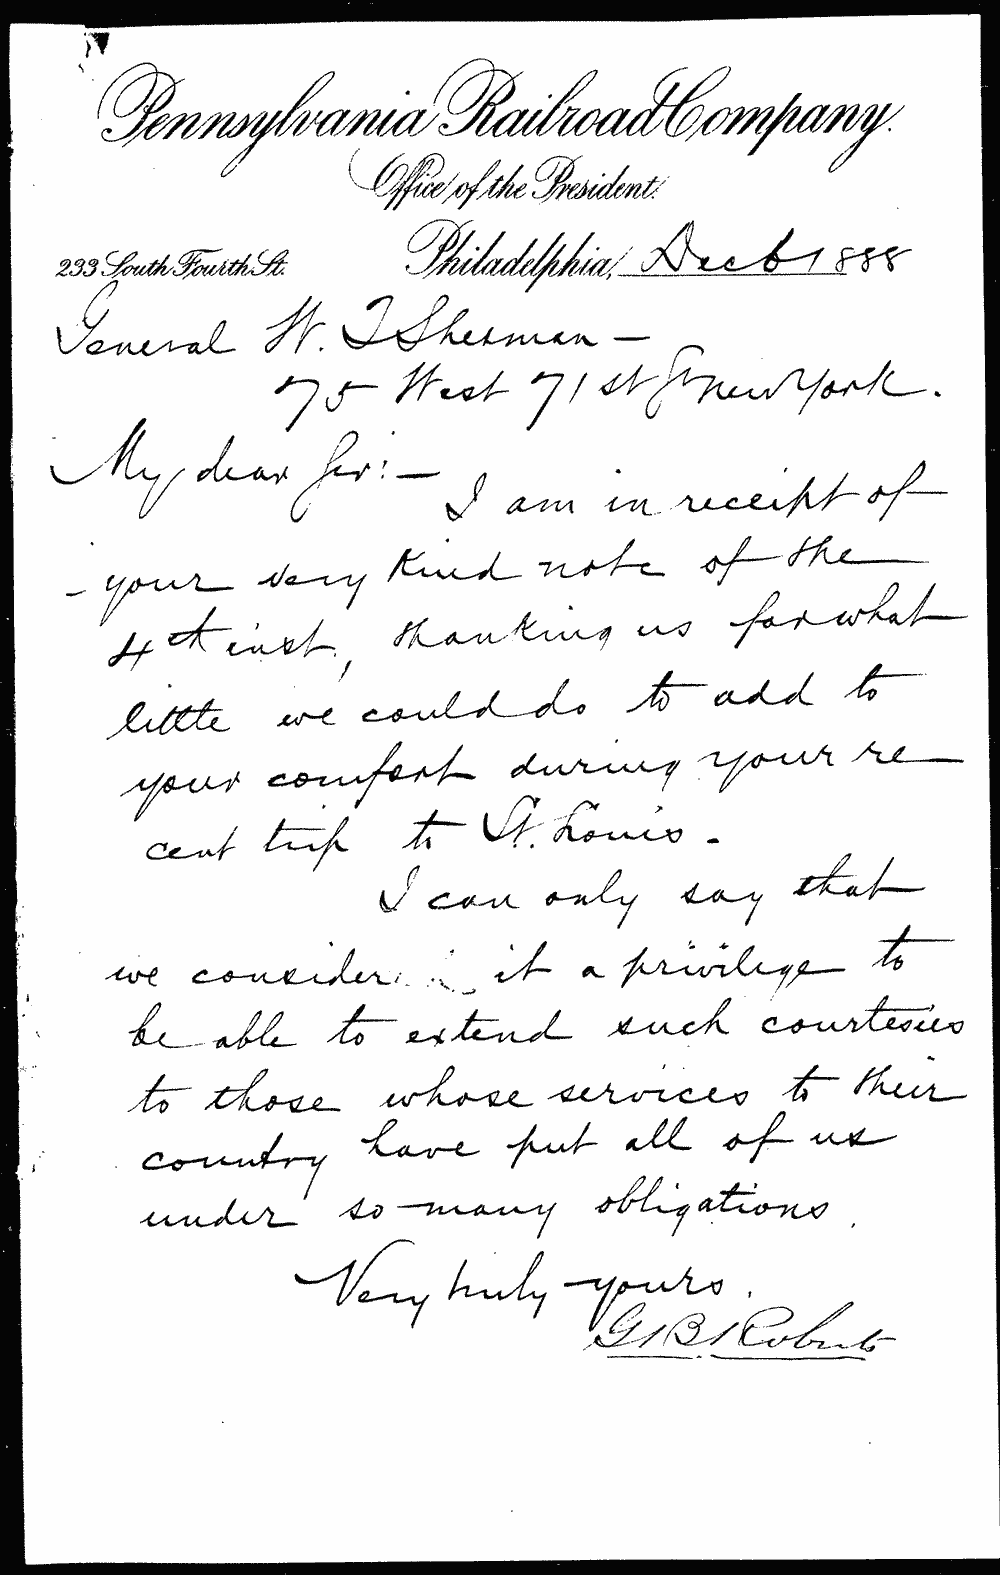 Pennsylvania Railroad Company.
Office of the President.
233 South Fourth St. Philadelphia, Dec 6 1888
General W. T Sherman —
75 West 71st St New York.
My dear Sir: —
I am in receipt of
your very kind note of the
4th inst, thanking us for what
little we could do to add to
your comfort during your re
cent trip to St. Louis.
I can only say that
we consider it a privilege to
be able to extend such courtesies
to those whose services to their
country have put all of us
under so many obligations.
Very truly yours.
G. B. Roberts